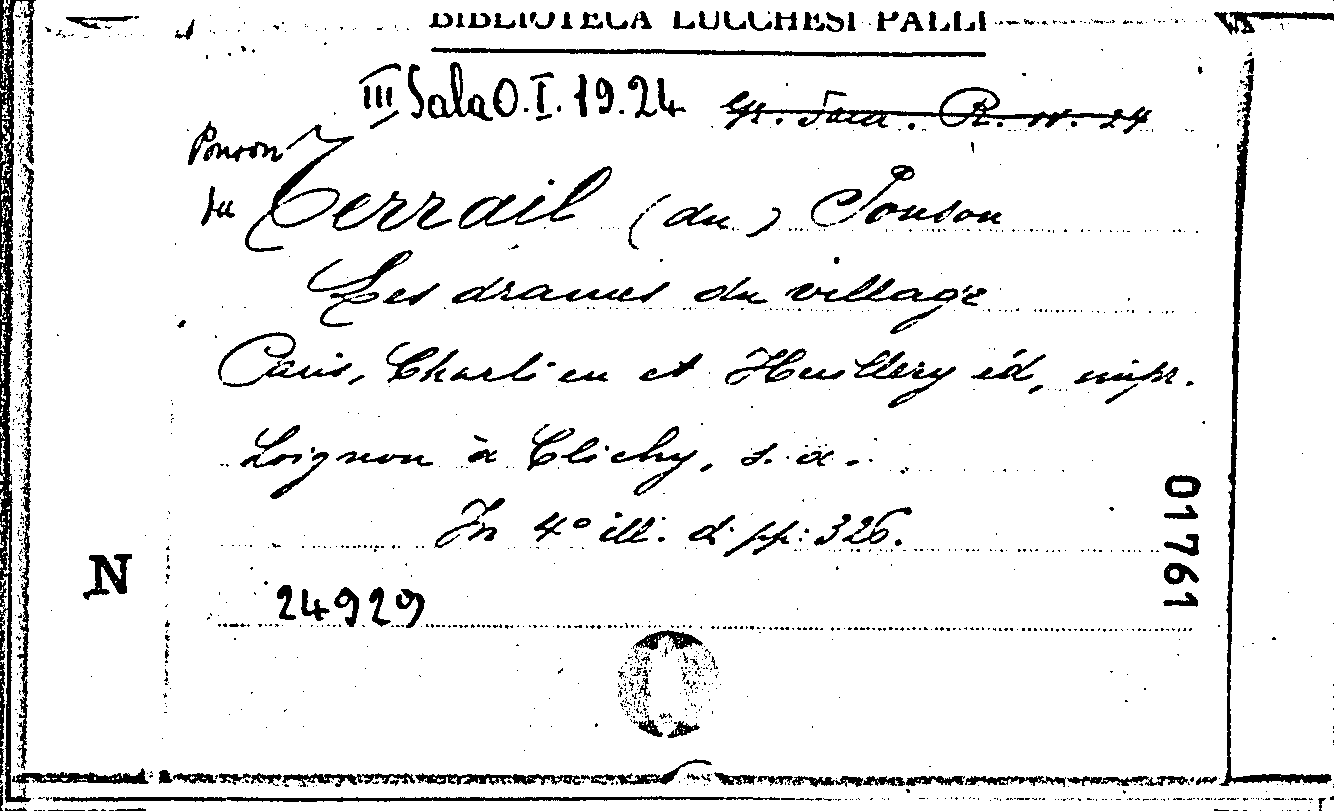 BIBLIOTECA LUCCHESI PALLI
III Sala O.I.19.24
Ponson
du Terrail (du) Ponson
Les drames du village
Paris, Charlieu et Huillery éd, impr.
Loignon à Clichy, s. a.
In 4° ill. di pp: 326.
24929
N
01761